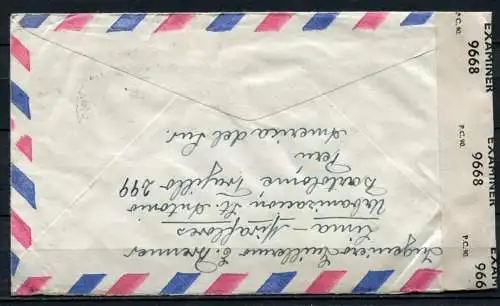 Ingeniero Guillermo C. Brenner
Lima - Miraflores
Urbanización St. Antonio
Bartolomé Trujillo 299
Peru
America del Sur.
EXAMINER
9668
P.C. 90.
EXAMINER
9668
P.C. 90.
EXAMINER
966
P.C. 90.